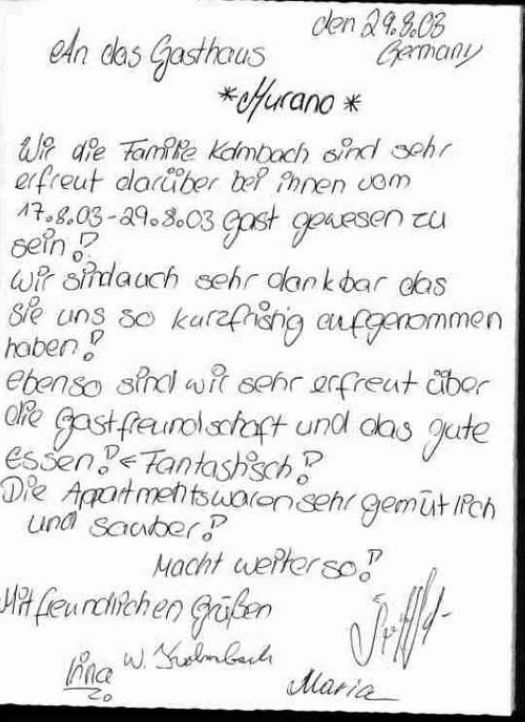 den 29.8.03
An das Gasthaus Germany
*Murano*
Wir die Familie Kambach sind sehr
erfreut darüber bei ihnen vom
17.8.03-29.8.03 gast gewesen zu
sein!
Wir sind auch sehr dankbar das
Sie uns so kurzfristig aufgenommen
haben!
ebenso sind wir sehr erfreut über
die Gastfreundschaft und das gute
essen! < Fantastisch!
Die Appartments waren sehr gemütlich
und sauber!
Macht weiter so!
Mit freundlichen Grüßen
W.
Maria